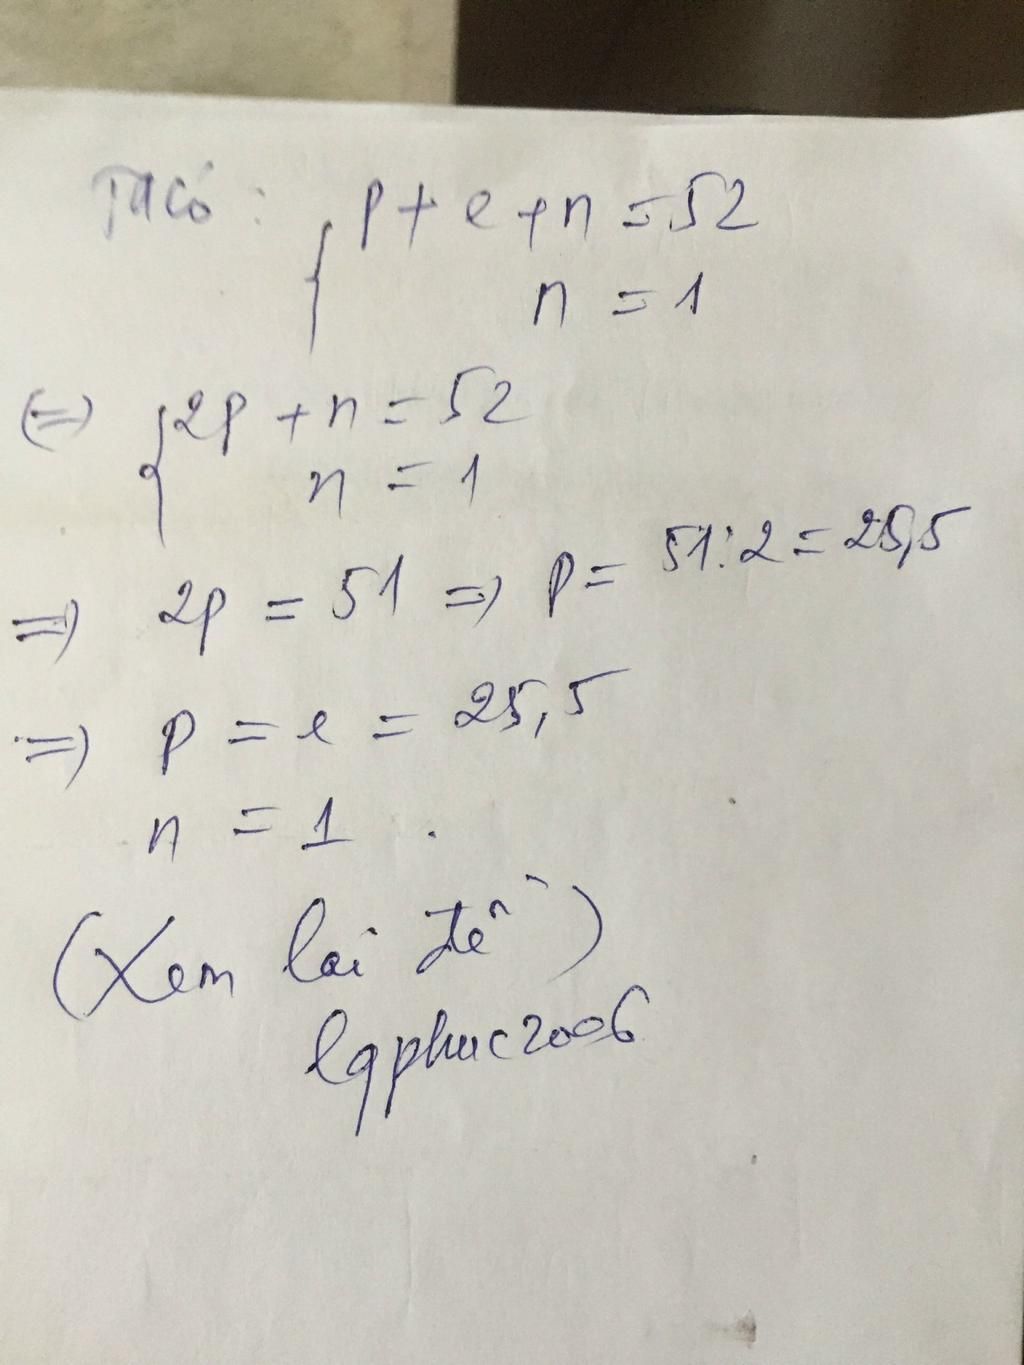 Ta có : { p + e + n = 52
n = 1
(=) { 2p + n = 52
n = 1
=) 2p = 51 =) p = 51:2 = 25,5
=) p = e = 25,5
n = 1 .
(Xem lại đề)
lqphuc2006